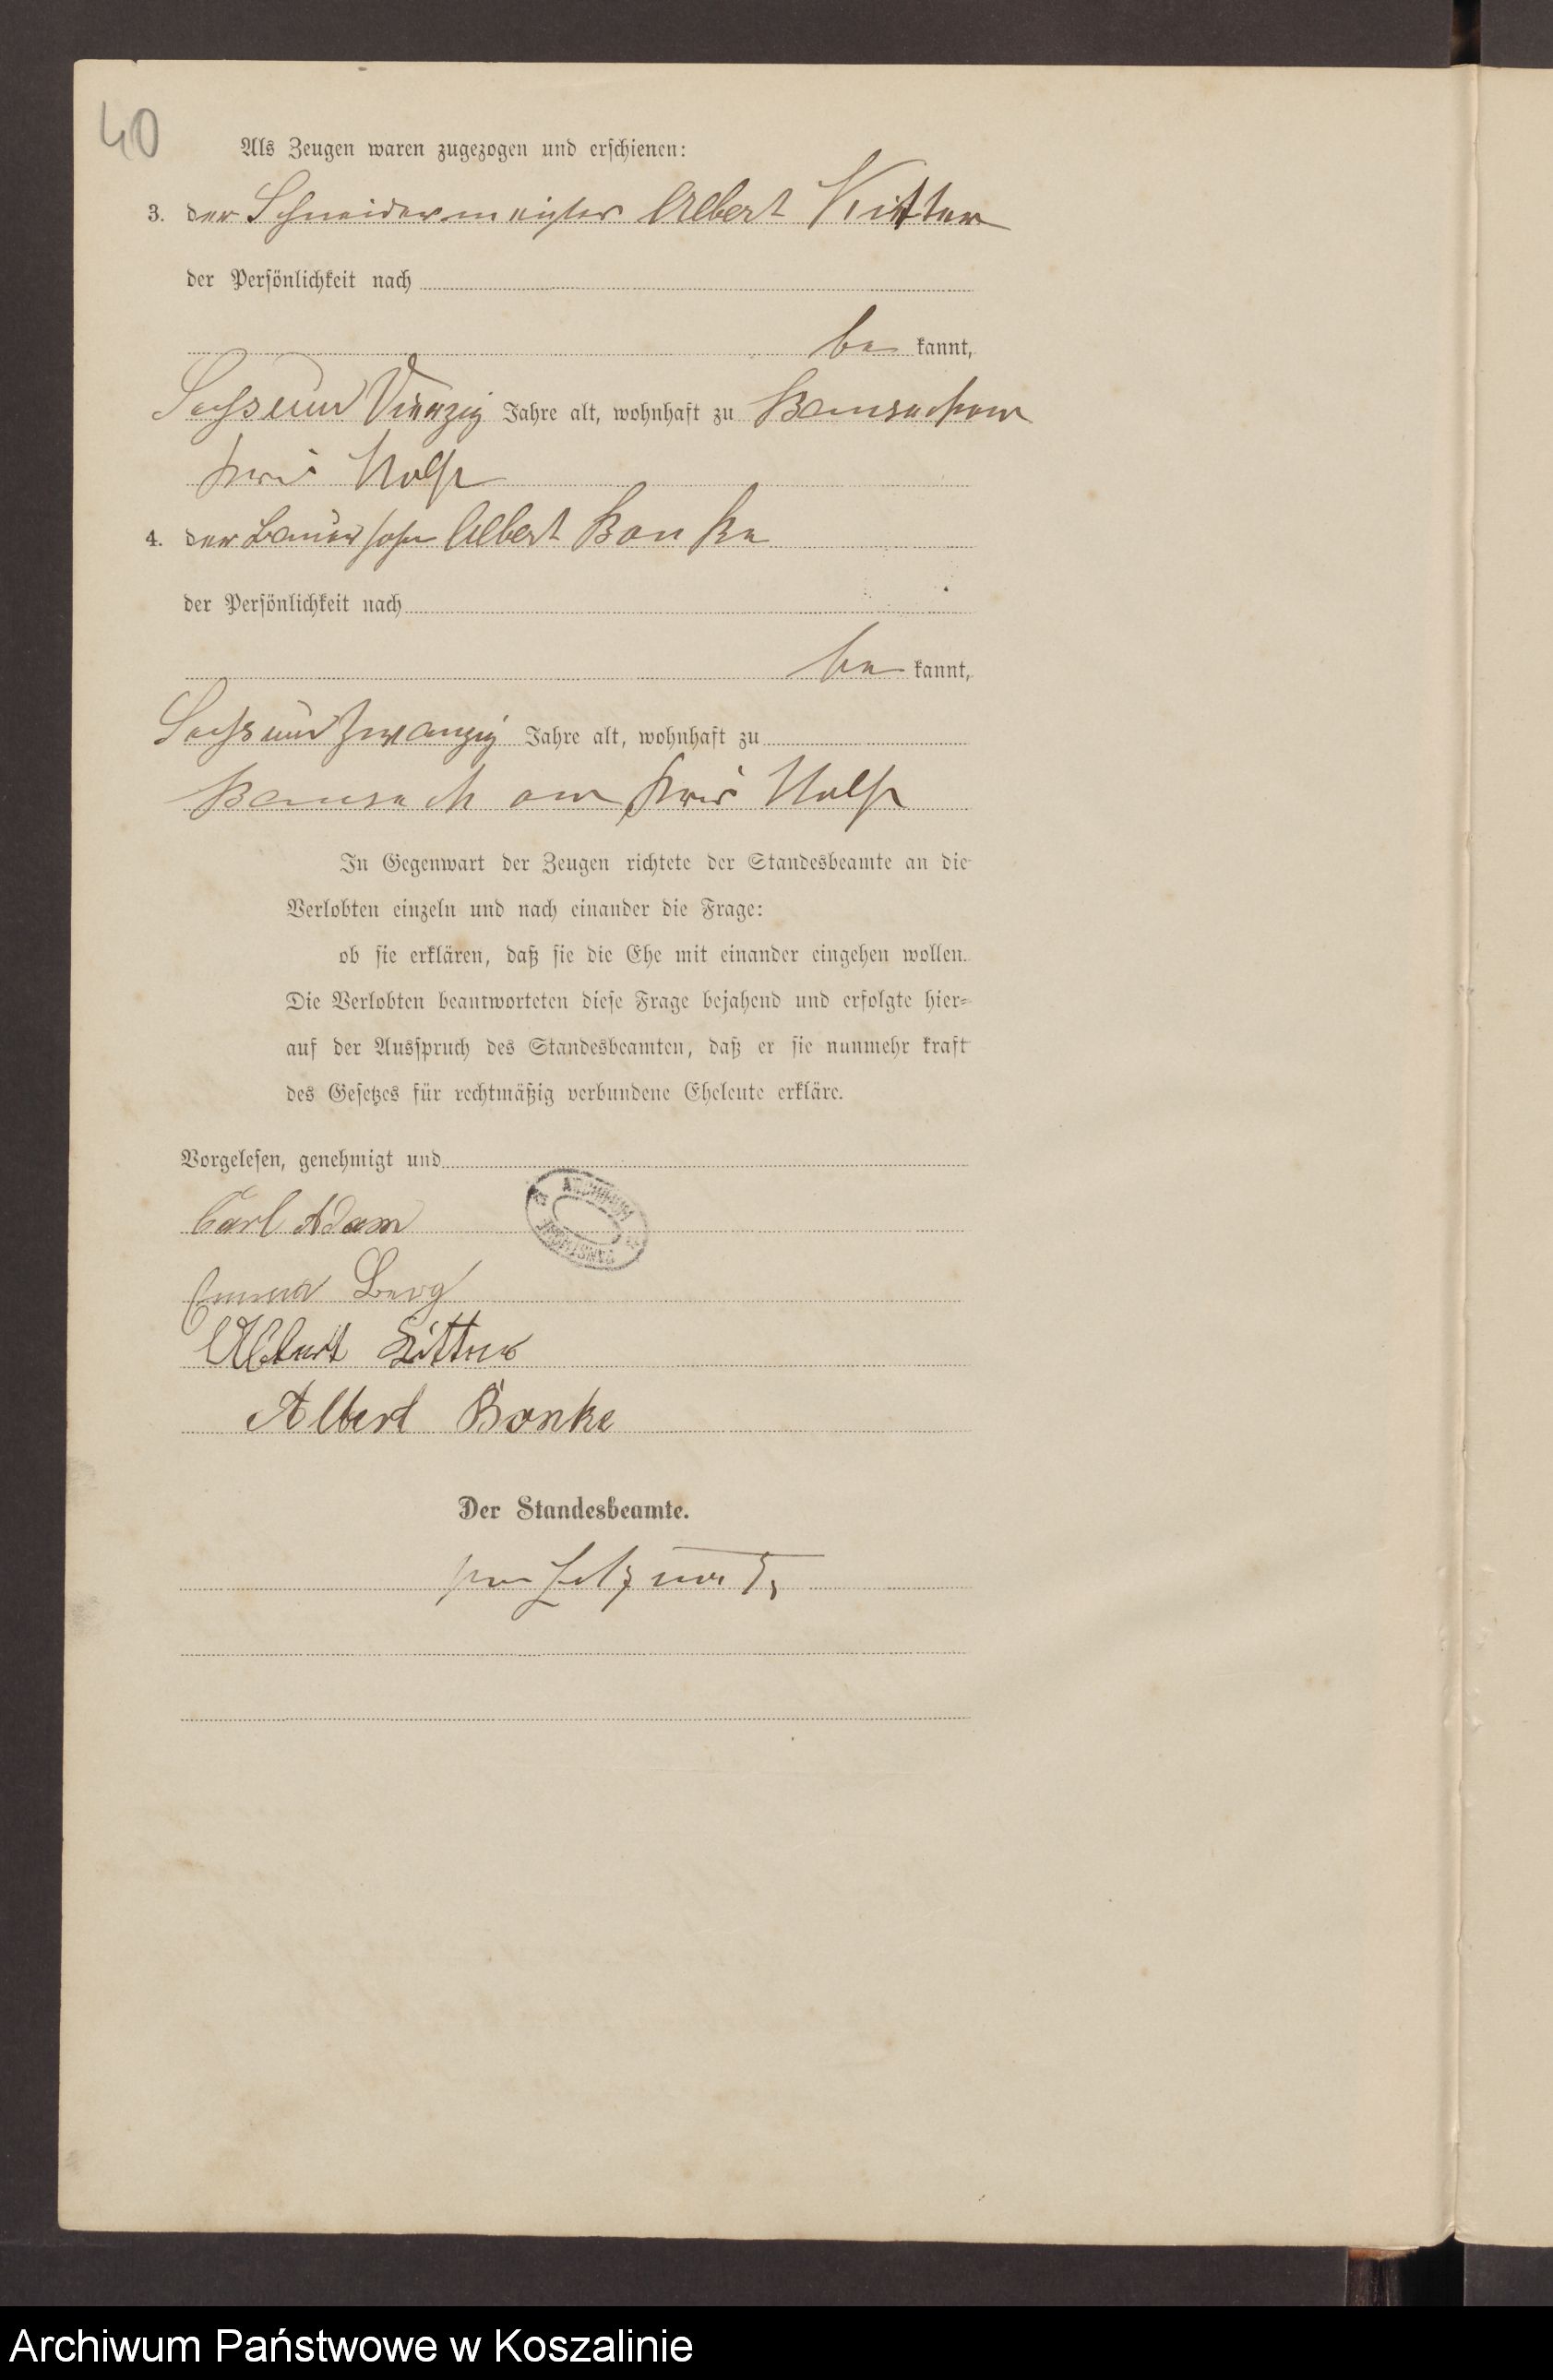 40
Als Zeugen waren zugezogen und erschienen:
3. der Schneidermeister Albert Kitter
der Persönlichkeit nach
be kannt,
Sechsund Vierzig Jahre alt, wohnhaft zu
Kreis Stolp
4. der Bauersohn Albert Bonke
der Persönlichkeit nach
be kannt,
Sechsundzwanzig Jahre alt, wohnhaft zu
Kreis Stolp
In Gegenwart der Zeugen richtete der Standesbeamte an die
Verlobten einzeln und nach einander die Frage:
ob sie erklären, daß sie die Ehe mit einander eingehen wollen.
Die Verlobten beantworteten diese Frage bejahend und erfolgte hier-
auf der Ausspruch des Standesbeamten, daß er sie nunmehr kraft
des Gesetzes für rechtmäßig verbundene Eheleute erkläre.
Vorgelesen, genehmigt und
Carl Adam
Emma Berg
Albert Kitter
Albert Bonke
Der Standesbeamte.
Archiwum Państwowe w Koszalinie